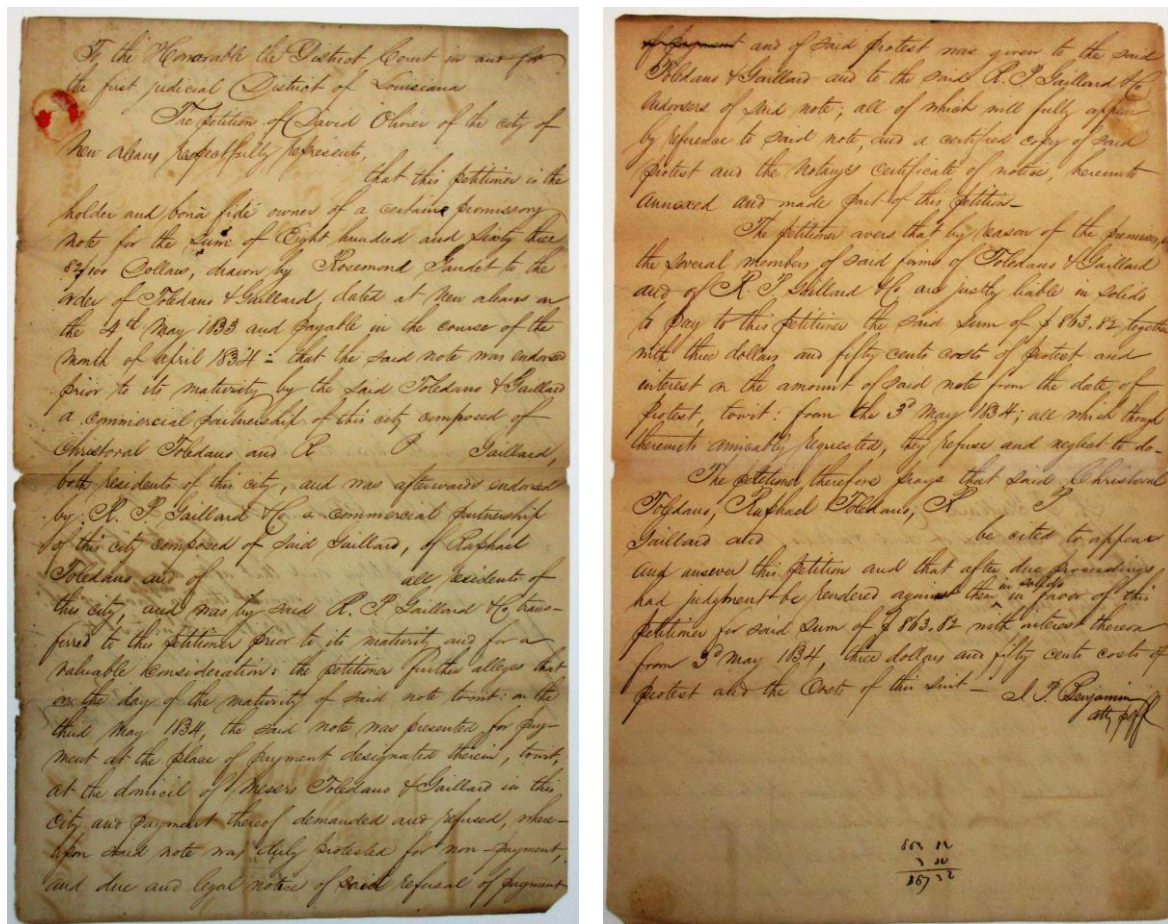 To the Honorable the District Court in and for
the first judicial District of Louisiana
The petition of David Olivier of the city of
New Orleans respectfully represents,
that this petitioner is the
holder and bona fide owner of a certain promissory
note for the sum of Eight hundred and sixty three
82/100 Dollars, drawn by Rosemond Gaudet to the
order of Toledano & Gaillard, dated at New Orleans on
the 4th May 1833 and payable in the course of the
month of april 1834: that the said note was endorsed
prior to its maturity by the said Toledano & Gaillard
a commercial partnership of this city composed of
Christoval Toledano and R P Gaillard,
both residents of this city, and was afterwards endorsed
by R. P. Gaillard & Co, a commercial partnership
of this city composed of said Gaillard, of Raphael
Toledano and of all residents of
this city, and was by said R. P. Gaillard & Co, trans-
ferred to this petitioner prior to its maturity and for a
valuable consideration: the petitioner further alleges that
on the day of the maturity of said note towit: on the
third May 1834, the said note was presented for pay-
ment at the place of payment designated therein, towit,
at the domicil of Messrs Toledano & Gaillard in this
City and payment thereof demanded and refused, where-
upon said note was duly protested for non-payment,
and due and legal notice of said refusal of payment
of payment and of said protest was given to the said
Toledano & Gaillard and to the said R. P. Gaillard & Co,
endorsers of said note; all of which will fully appear
by reference to said note, and a certified copy of said
protest and the Notary's certificate of notice, hereunto
annexed and made part of this petition—
The petitioner avers that by reason of the premises,
the several members of said firms of Toledano & Gaillard
and of R. P. Gaillard & Co, are justly liable in solido
to pay to this petitioner the said sum of $863.82 together
with three dollars and fifty cents costs of protest and
interest on the amount of said note from the date of
protest, towit: from the 3d May 1834; all which though
thereunto amicably requested, they refuse and neglect to do—
The petitioner therefore prays that said Christoval
Toledano, Raphael Toledano, R P
Gaillard and be cited to appear
and answer this petition and that after due proceedings
had judgment be rendered against them in solido in favor of this
petitioner for said sum of $863.82 with interest thereon
from 3d May 1834, three dollars and fifty cents costs of
protest and the Costs of this suit— J. P. Benjamin
atty plff
867 32